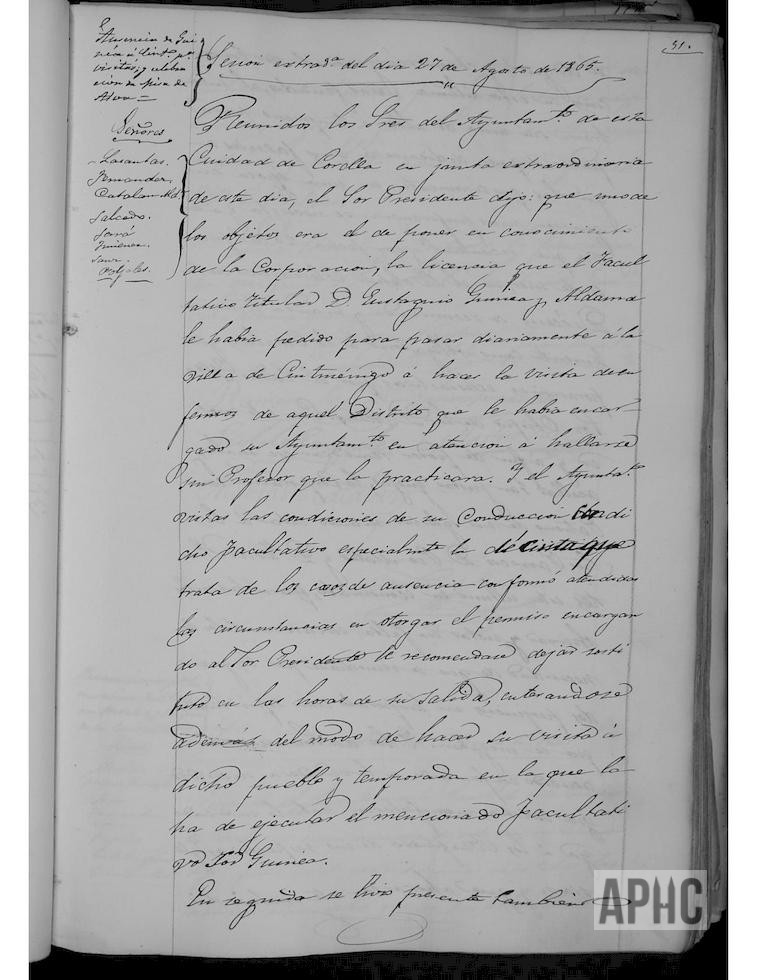 51.
Ausencia de Gui
nea á Cint.º p.r
visitas; y celebra
cion de
=
Señores
Lasantas.
Fernandez.
Catalan
Salcedo.
Serrá
Jimenez.
Sanz.
Sesion extrad.a del dia 27 de Agosto de 1865.
Reunidos los Sres del Ayuntam.to de esta
Ciudad de Corella en junta extraordinaria
de este dia, el Sor Presidente dijo: que uno de
los objetos era el de poner en conocimiento
de la Corporacion, la licencia que el Facul
tativo titular D. Eustaquio Guinea y Aldama
le habia pedido para pasar diariamente á la
villa de Cintruénigo á hacer la visita de en
fermos de aquel Distrito que le habia encar-
gado su Ayuntam.to en atencion á hallarse
sin Profesor que la practicara. Y el Ayunta.to
vistas las condiciones de su conduccion di
cho Facultativo especialmte la décima que
trata de los casos de ausencia conformó atendidas
las circunstancias en otorgar el permiso encargan
do al Sor Presidente le recomendase dejar susti
tuto en las horas de su salida, enterandose
además del modo de hacer su visita á
dicho pueblo y temporada en la que la
ha de ejecutar el mencionado Facultati
vo Sor Guinea.
En seguida se hizo presente tambien
APHC